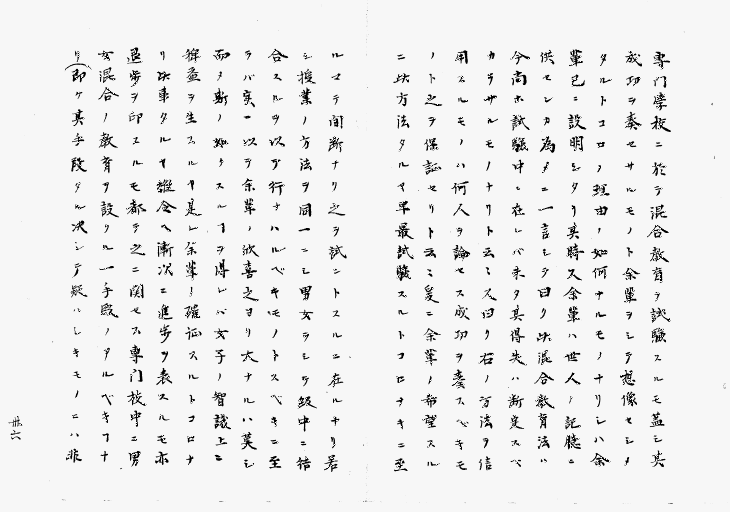 専門學校ニ於テ混合教育ヲ試驗スルモ蓋シ其
成功ヲ奏セサルモノト余輩ヲシテ想像セシメ
タルトコロノ理由ノ如何ナルモノナリシハ余
輩已ニ設明シタリ其時又余輩ハ世人ノ記臆ニ
供センカ為メニ一言シテ曰ク此混合教育法ハ
今尚ホ試驗中ニ在レバ未タ其得失ハ断定スベ
カラサルモノナリト云ヒ又曰ク右ノ方法ヲ信
用スルモノハ何人ヲ論セス成功ヲ奏スベキモ
ノト之ヲ保証セリト云ヒ爰ニ余輩ノ希望スル
ニ此方法タルヤ早最試驗スルトコロナキニ至
ルマテ間断ナリ之ヲ試ニトスルニ在ルナリ若
シ授業ノ方法ヲ同一ニシ男女ヲシテ級中ニ結
合スルヲ以テ行ナハルベキモノトスベキニ至
ラバ実ニ以テ余輩ノ欣喜之ヨリ大ナルハ莫シ
而メ斯ノ如クスルヿヲ得レバ女子ノ智識上ニ
裨益ヲ生スルヤ是レ余輩ノ確証スルトコロナ
リ此事タルヤ縦令ヘ漸次ニ進歩ヲ表スルモ亦
退歩ヲ印スルモ都テ之ニ関セス専門校中ニ男
女混合ノ教育ヲ設クル一手段ノタルベキヿナ
リ即ケ其手段タル决シテ疑ハシキモノニハ非
卅六